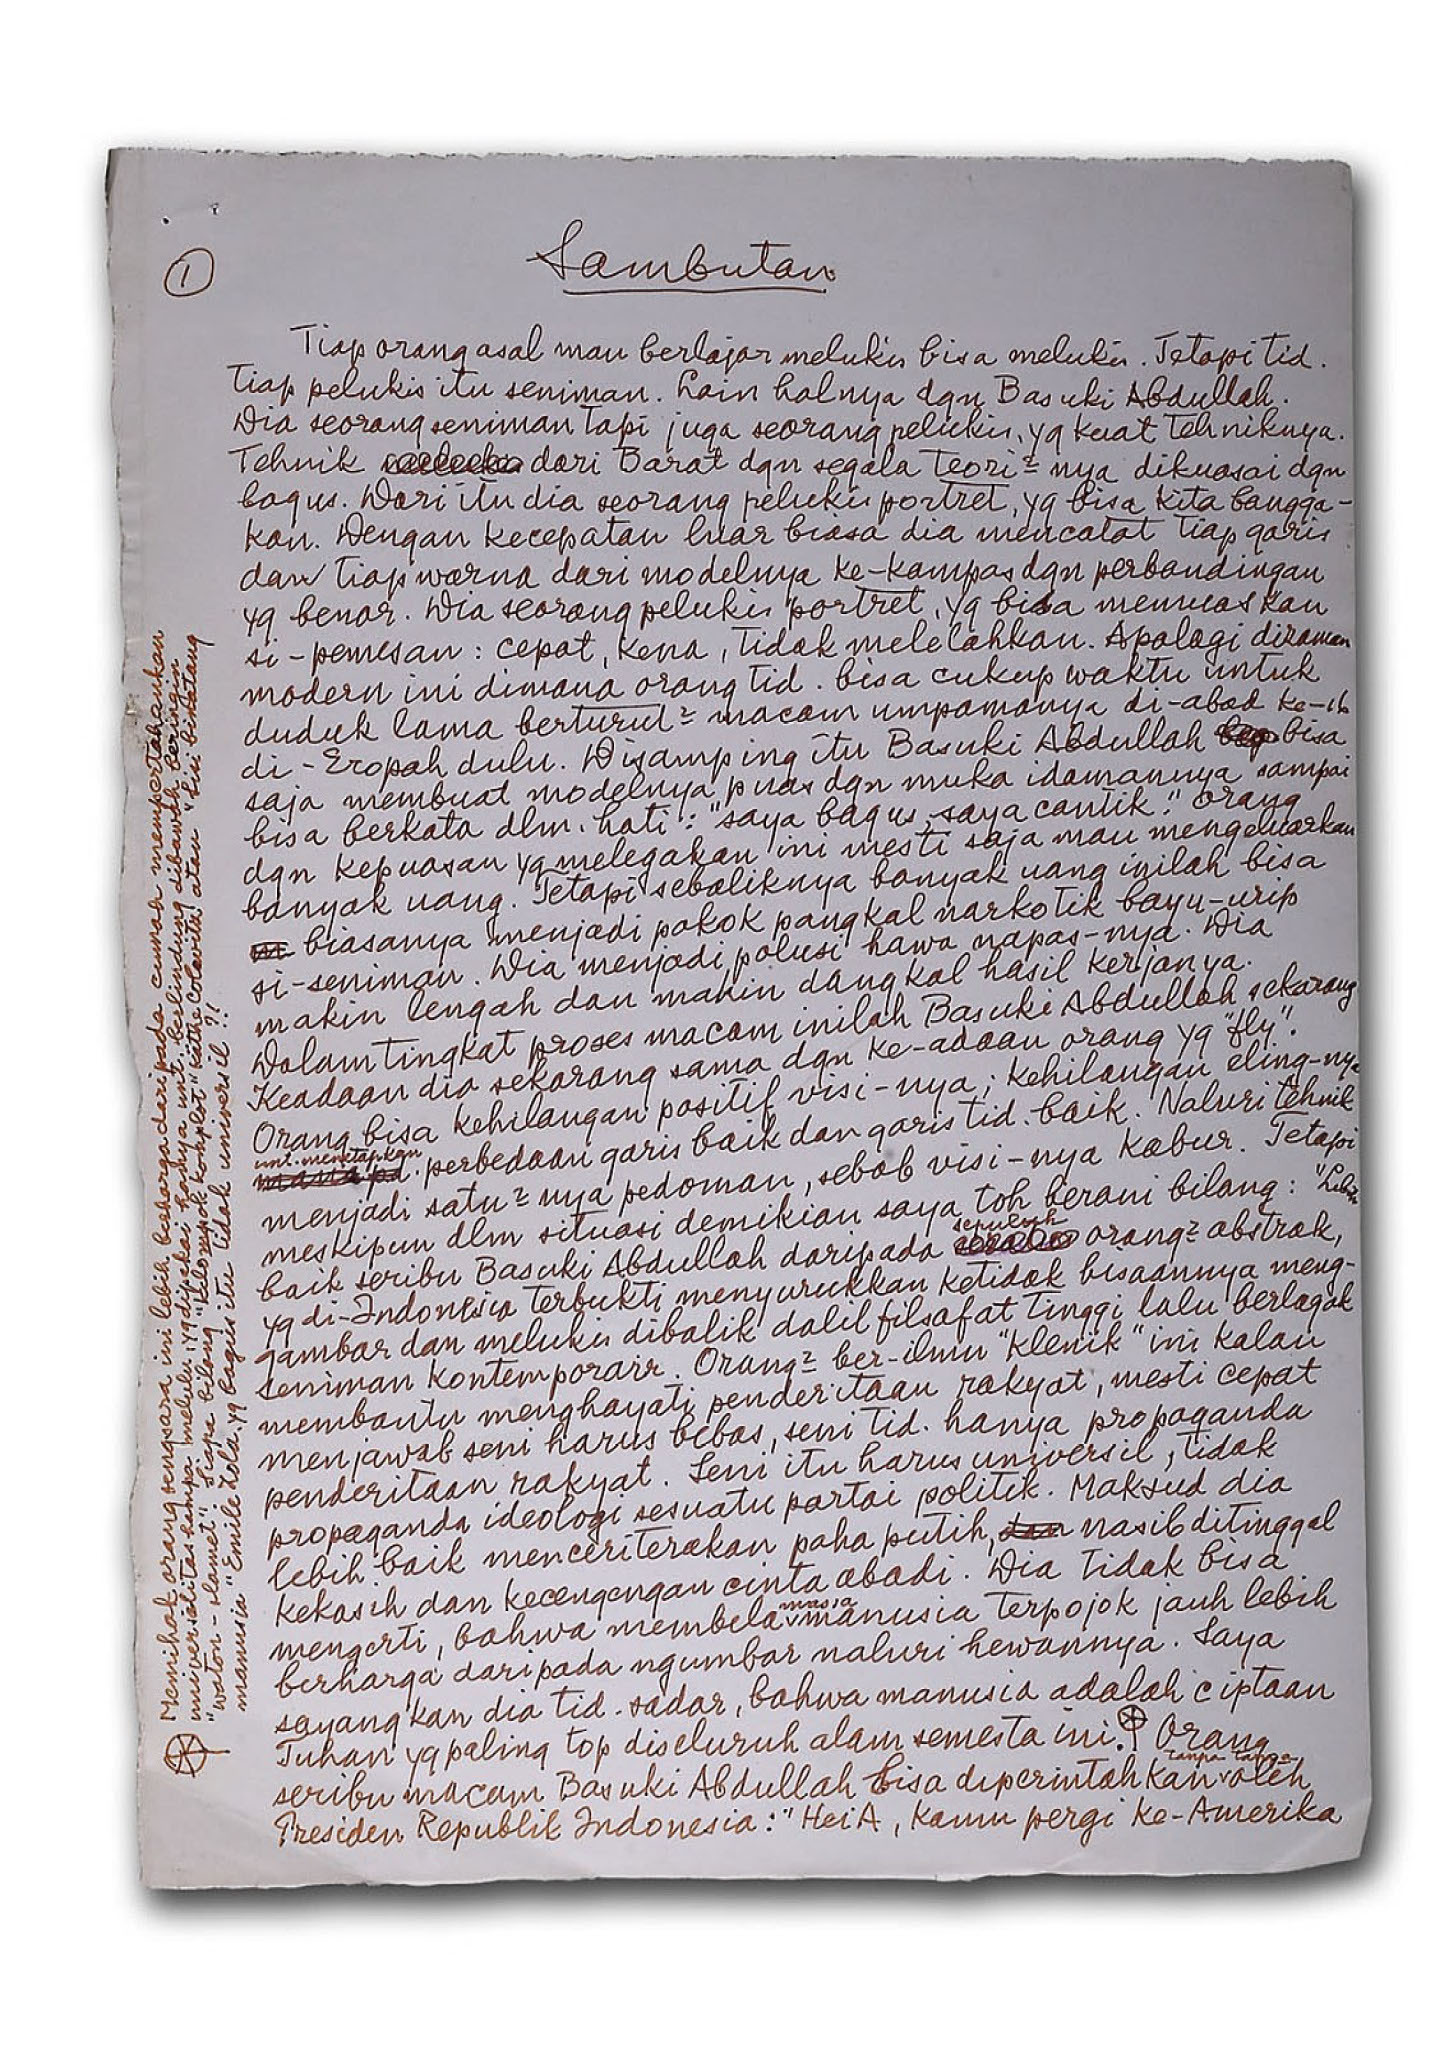 1
Sambutan
Tiap orang asal mau berlajar melukis bisa melukis. Tetapi tid.
tiap pelukis itu seniman. Lain halnya dgn Basuki Abdullah.
Dia seorang seniman tapi juga seorang pelukis, yg kuat tehniknya.
Tehnik dari Barat dgn segala teori²nya dikuasai dgn
bagus. Dari itu dia seorang pelukis portret, yg bisa kita bangga-
kan. Dengan kecepatan luar biasa dia mencatat tiap garis
dan tiap warna dari modelnya ke-kampas dgn perbandingan
yg benar. Dia seorang pelukis portret, yg bisa memuaskan
si-pemesan: cepat, kena, tidak melelahkan. Apalagi dizaman
modern ini dimana orang tid. bisa cukup waktu untuk
duduk lama berturut² macam umpamanya di-abad ke-16
di-Eropah dulu. Disamping itu Basuki Abdullah bisa
saja membuat modelnya puas dgn muka idamannya sampai
bisa berkata dlm. hati: "saya bagus, saya cantik." Orang
dgn kepuasan yg melegakan ini mesti saja mau mengeluarkan
banyak uang. Tetapi sebaliknya banyak uang inilah bisa
biasanya menjadi pokok pangkal narkotik bayu-urip
si-seniman. Dia menjadi polusi hawa napas-nya. Dia
makin lengah dan makin dangkal hasil kerjanya.
Dalam tingkat proses macam inilah Basuki Abdullah sekarang
Keadaan dia sekarang sama dgn ke-adaan orang yg "fly".
Orang bisa kehilangan positif visi-nya; kehilangan eling-nya
unt. menetapkan perbedaan garis baik dan garis tid. baik. Naluri tehnik
menjadi satu²nya pedoman, sebab visi-nya kabur. Tetapi
meskipun dlm situasi demikian saya toh berani bilang: "Lebih
baik seribu Basuki Abdullah daripada sepuluh orang² abstrak,
yg di-Indonesia terbukti menyurukkan ketidak bisaannya meng-
gambar dan melukis dibalik dalil filsafat tinggi lalu berlagak
seniman kontemporair. Orang² ber-ilmu "klenik" ini kalau
membantu menghayati penderitaan rakyat, mesti cepat
menjawab seni harus bebas, seni tid. hanya propaganda
penderitaan rakyat. Seni itu harus universil, tidak
propaganda ideologi sesuatu partai politik. Maksud dia
lebih baik menceriterakan paha putih, nasib ditinggal
kekasih dan kecengengan cinta abadi. Dia tidak bisa
mengerti, bahwa membela massa manusia terpojok jauh lebih
berharga daripada ngumbar naluri hewannya. Saya
sayangkan dia tid. sadar, bahwa manusia adalah ciptaan
Tuhan yg paling top diseluruh alam semesta ini. Orang
seribu macam Basuki Abdullah bisa diperintahkan tanpa tanya oleh
Presiden Republik Indonesia: "Hei A, kamu pergi ke-Amerika
Memihak orang sengsara ini lebih berharga daripada cuman mempertahankan
universalitas hampa melulu, yg dipakai hanya unt. berlindung dibawah beringin
"waton-slamet". Siapa bilang "Kelompok komplot" Käthe Colowitz atau "Sisi binatang
manusia" Emile Zola yg bagus itu tidak universil?!